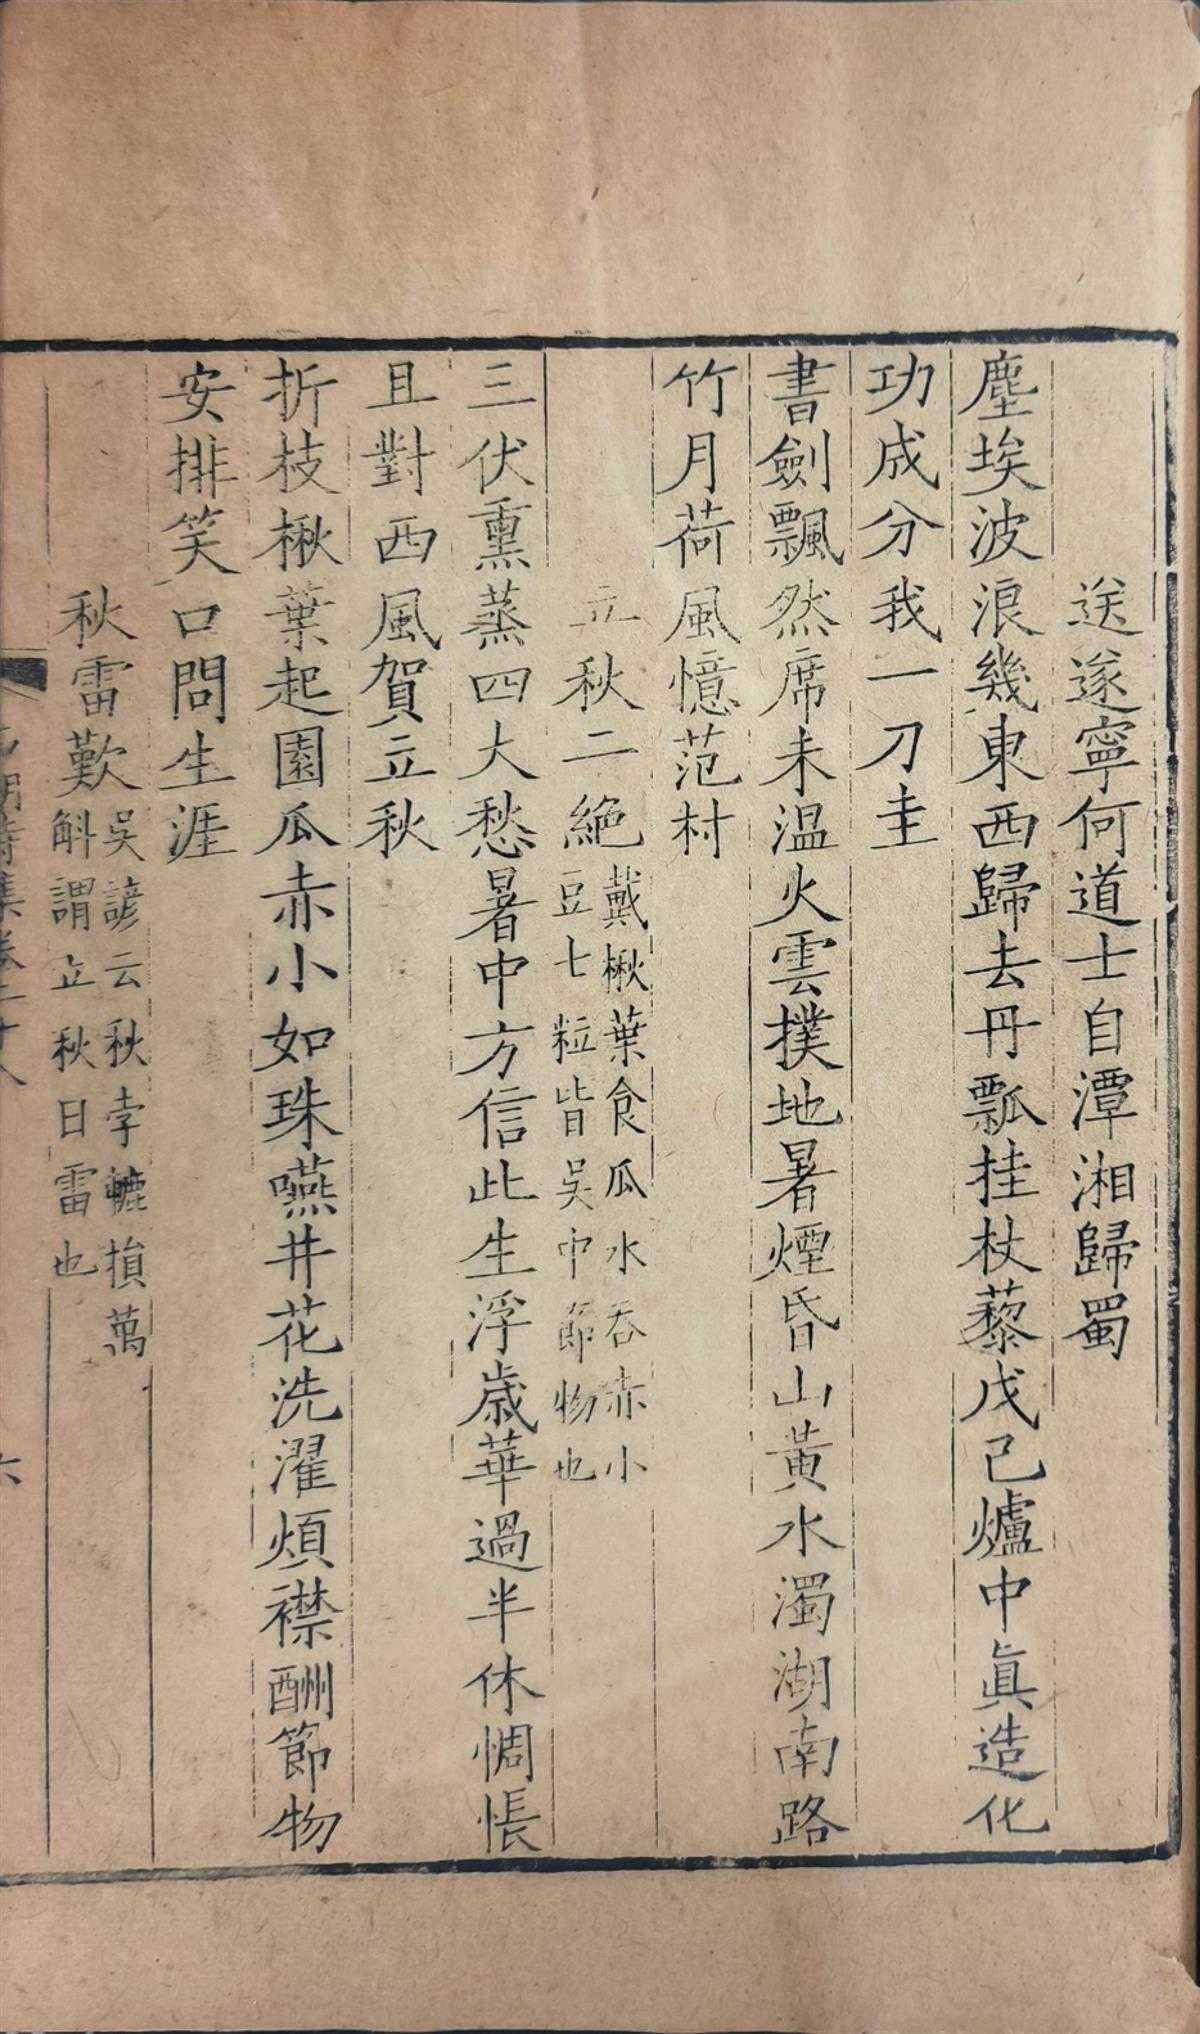 送遂寧何道士自潭湘歸蜀
塵埃波浪幾東西歸去丹瓢挂杖藜戊己爐中眞造化
功成分我一刀圭
書劍飄然席未温火雲撲地暑煙昏山黃水濁湖南路
竹月荷風憶范村
立秋二絶戴楸葉食瓜水吞赤小
豆七粒皆吴中節物也
三伏熏蒸四大愁暑中方信此生浮歳華過半休惆悵
且對西風賀立秋
折枝楸葉起園瓜赤小如珠嚥井花洗濯煩襟酬節物
安排笑口問生涯
秋雷歎吴諺云秋孛轆損萬
斛謂立秋日雷也
湖詩集卷二十八
六